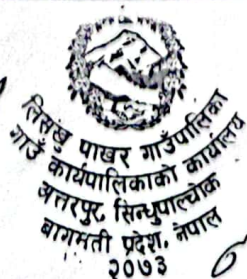 लिसंखु पाखर गाउँपालिका
गाउँ कार्यपालिकाको कार्यालय
अत्तरपुर, सिन्धुपाल्चोक
बागमती प्रदेश, नेपाल
२०७३